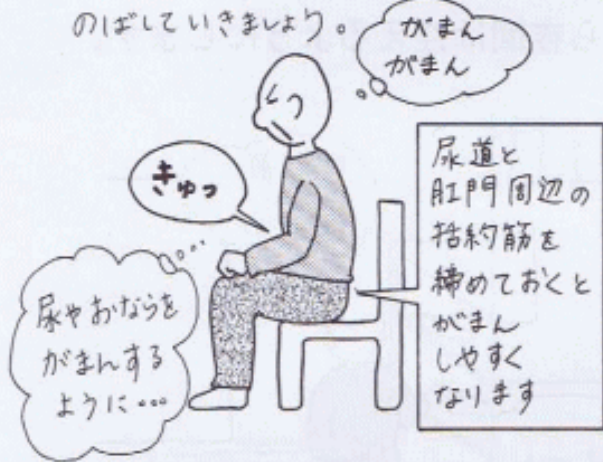 のばしていきましょう。
がまん
がまん
きゅっ
尿道と
肛門周辺の
括約筋を
締めておくと
がまん
しやすく
なります
尿やおならを
がまんする
ように…